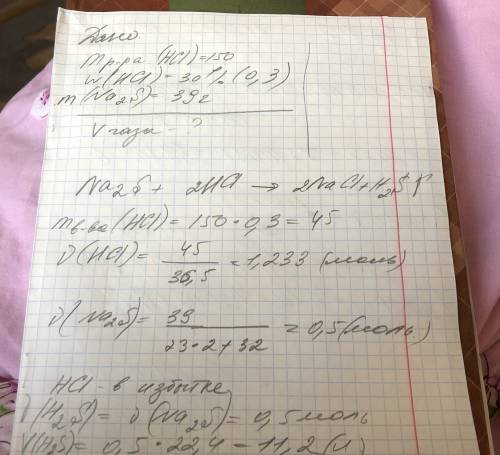 Дано
m р-ра (HCl) = 150
w (HCl) = 30% (0,3)
m (Na2S) = 39г
V газа - ?
Na2S + 2HCl → 2NaCl + H2S↑
m в-ва (HCl) = 150 · 0,3 = 45
ν (HCl) = 45 / 36,5 = 1,233 (моль)
ν (Na2S) = 39 / 23·2+32 = 0,5 (моль.)
HCl - в избытке
ν (H2S) = ν (Na2S) = 0,5 моль
V(H2S) = 0,5 · 22,4 = 11,2 (л)